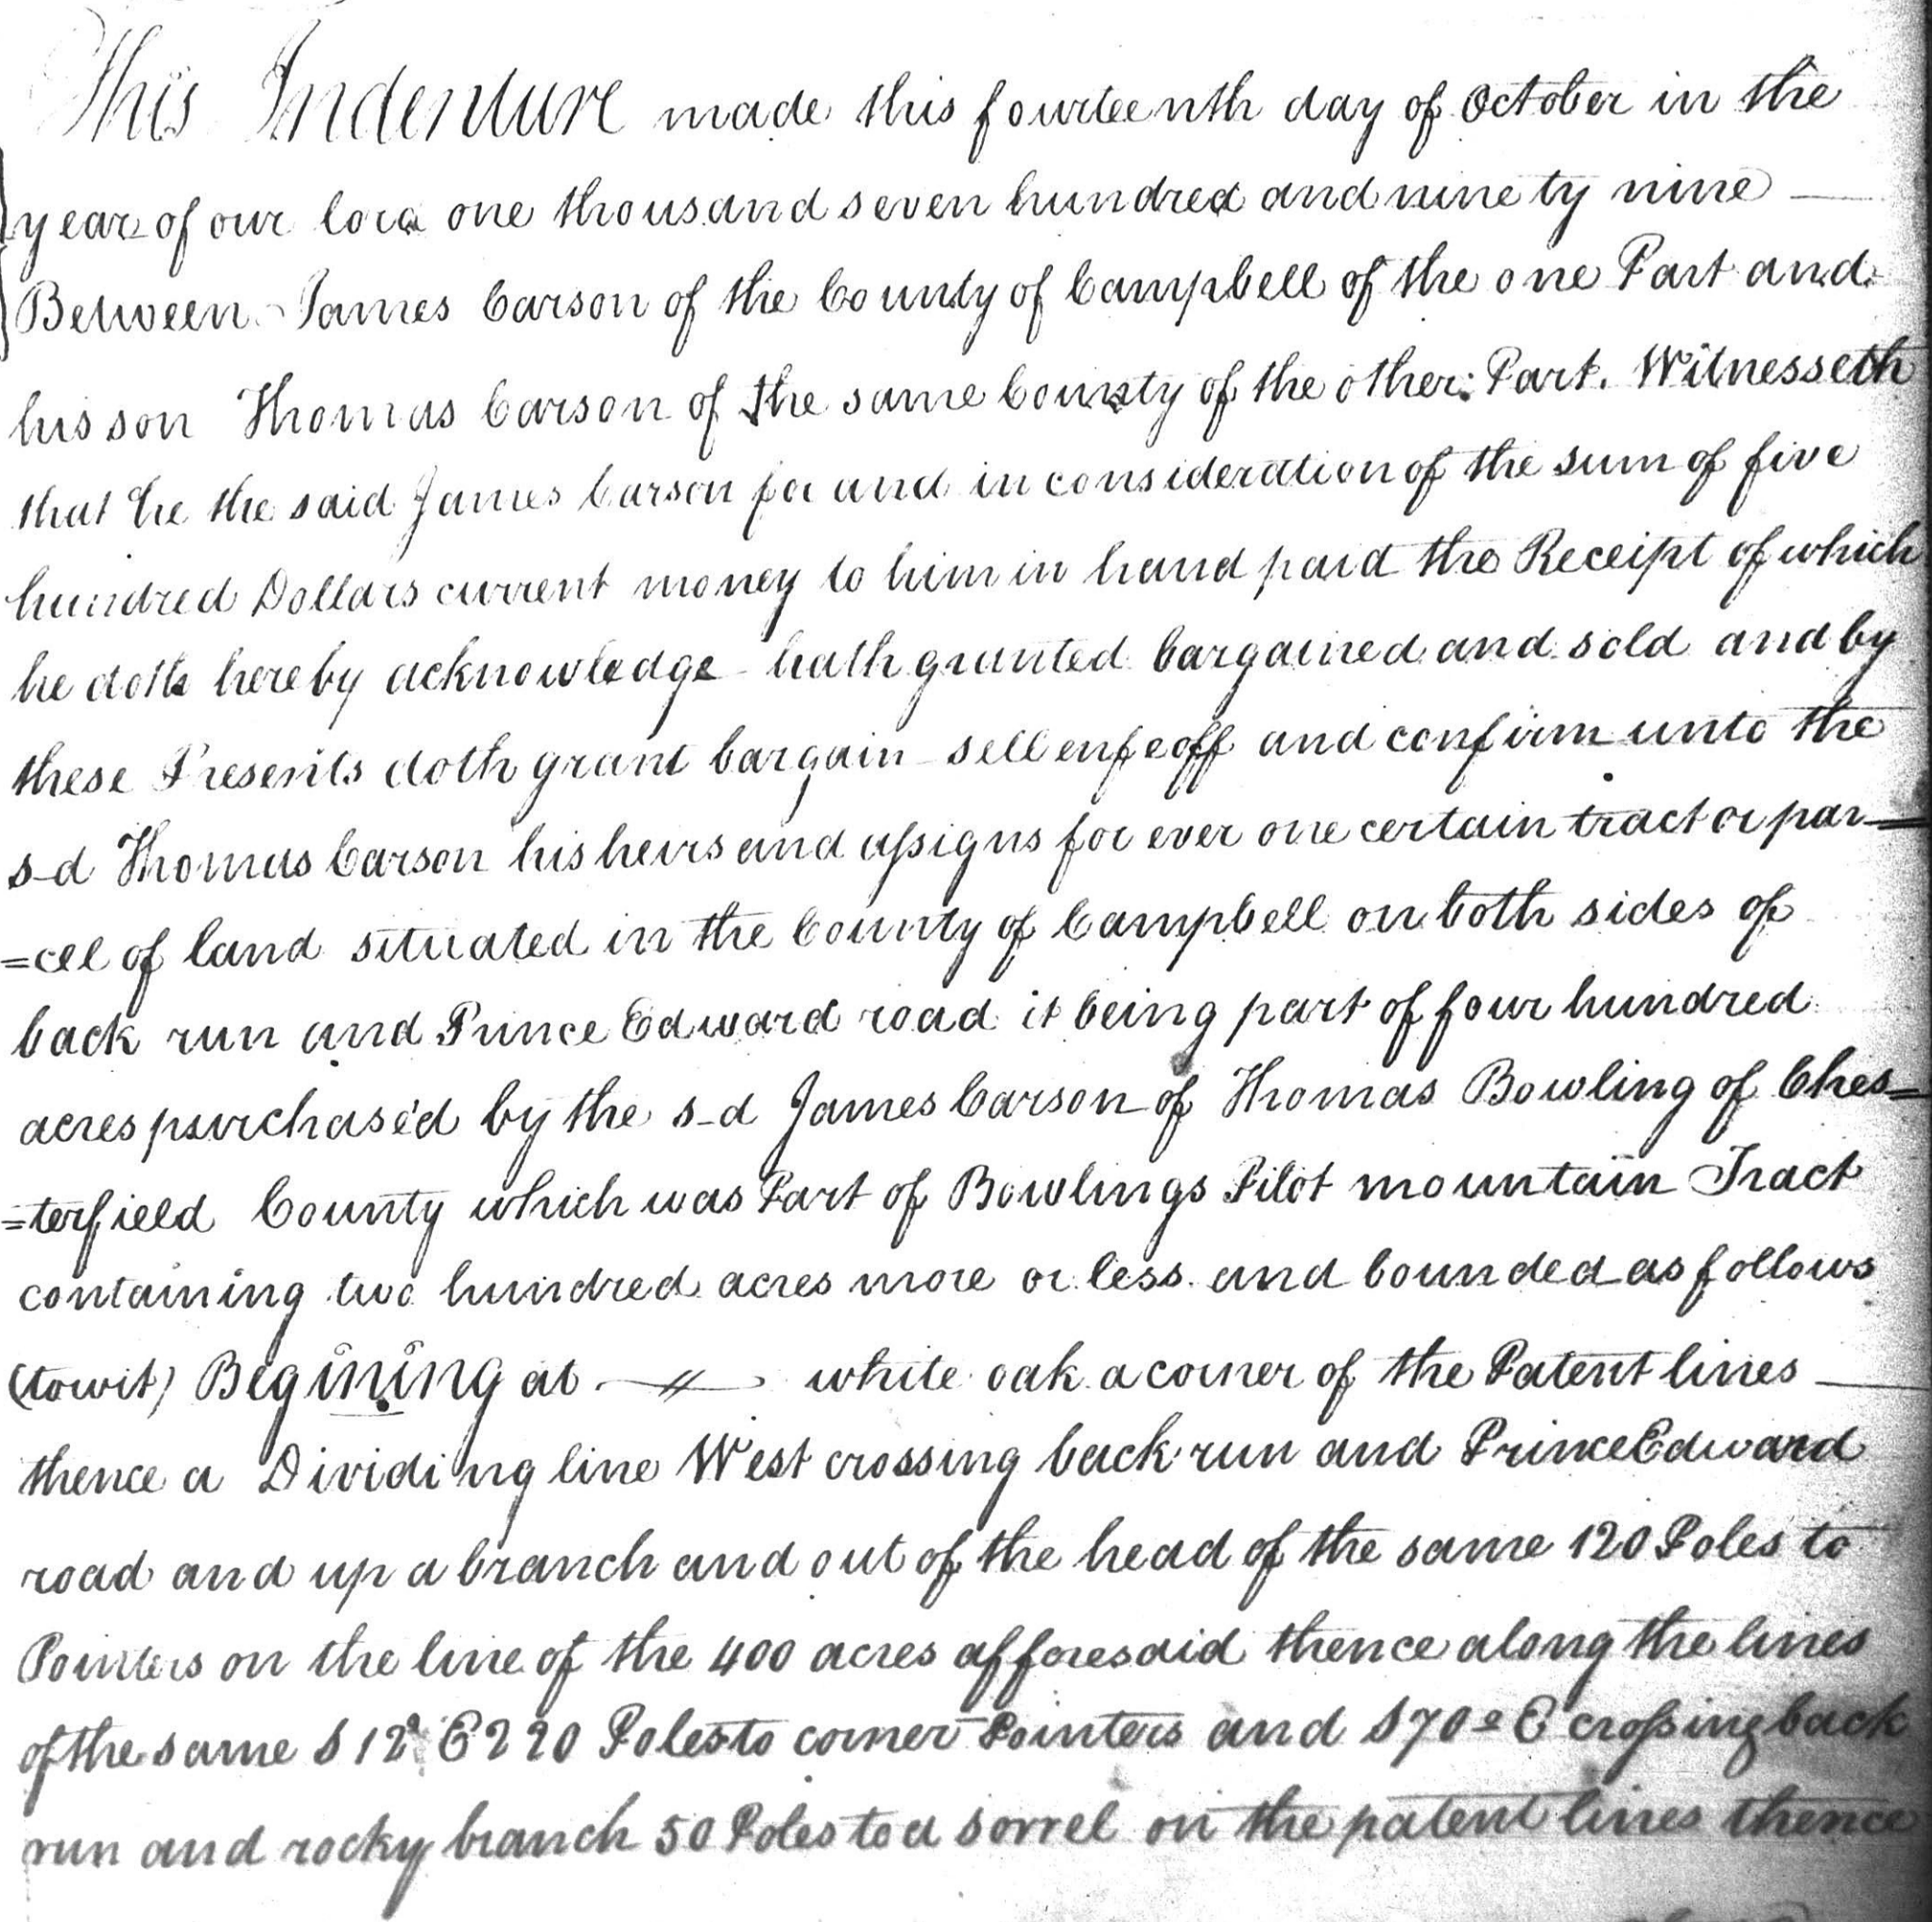 This Indenture made this fourteenth day of October in the
year of our lord one thousand seven hundred and ninety nine
Between James Carson of the County of Campbell of the one Part and
his son Thomas Carson of the same County of the other Part. Witnesseth
that he the said James Carson for and in consideration of the sum of five
hundred Dollars current money to him in hand paid the Receipt of which
he doth hereby acknowledge hath granted bargained and sold and by
these Presents doth grant bargain sell enfeoff and confirm unto the
s-d Thomas Carson his heirs and assigns for ever one certain tract or par-
=cel of land situated in the County of Campbell on both sides of
back run and Prince Edward road it being part of four hundred
acres purchase'd by the s-d James Carson of Thomas Bowling of Ches=
=terfield County which was Part of Bowlings Pilot mountain Tract
containing two hundred acres more or less and bounded as follows
(towit) Begining at —//— white oak a corner of the Patent lines —
thence a Dividing line West crossing back run and Prince Edward
road and up a branch and out of the head of the same 120 Poles to
Pointers on the line of the 400 acres afforesaid thence along the lines
of the same S 12° E 220 Poles to corner Pointers and S 70° E crossing back
run and rocky branch 50 Poles to a sorrel on the patent lines thence